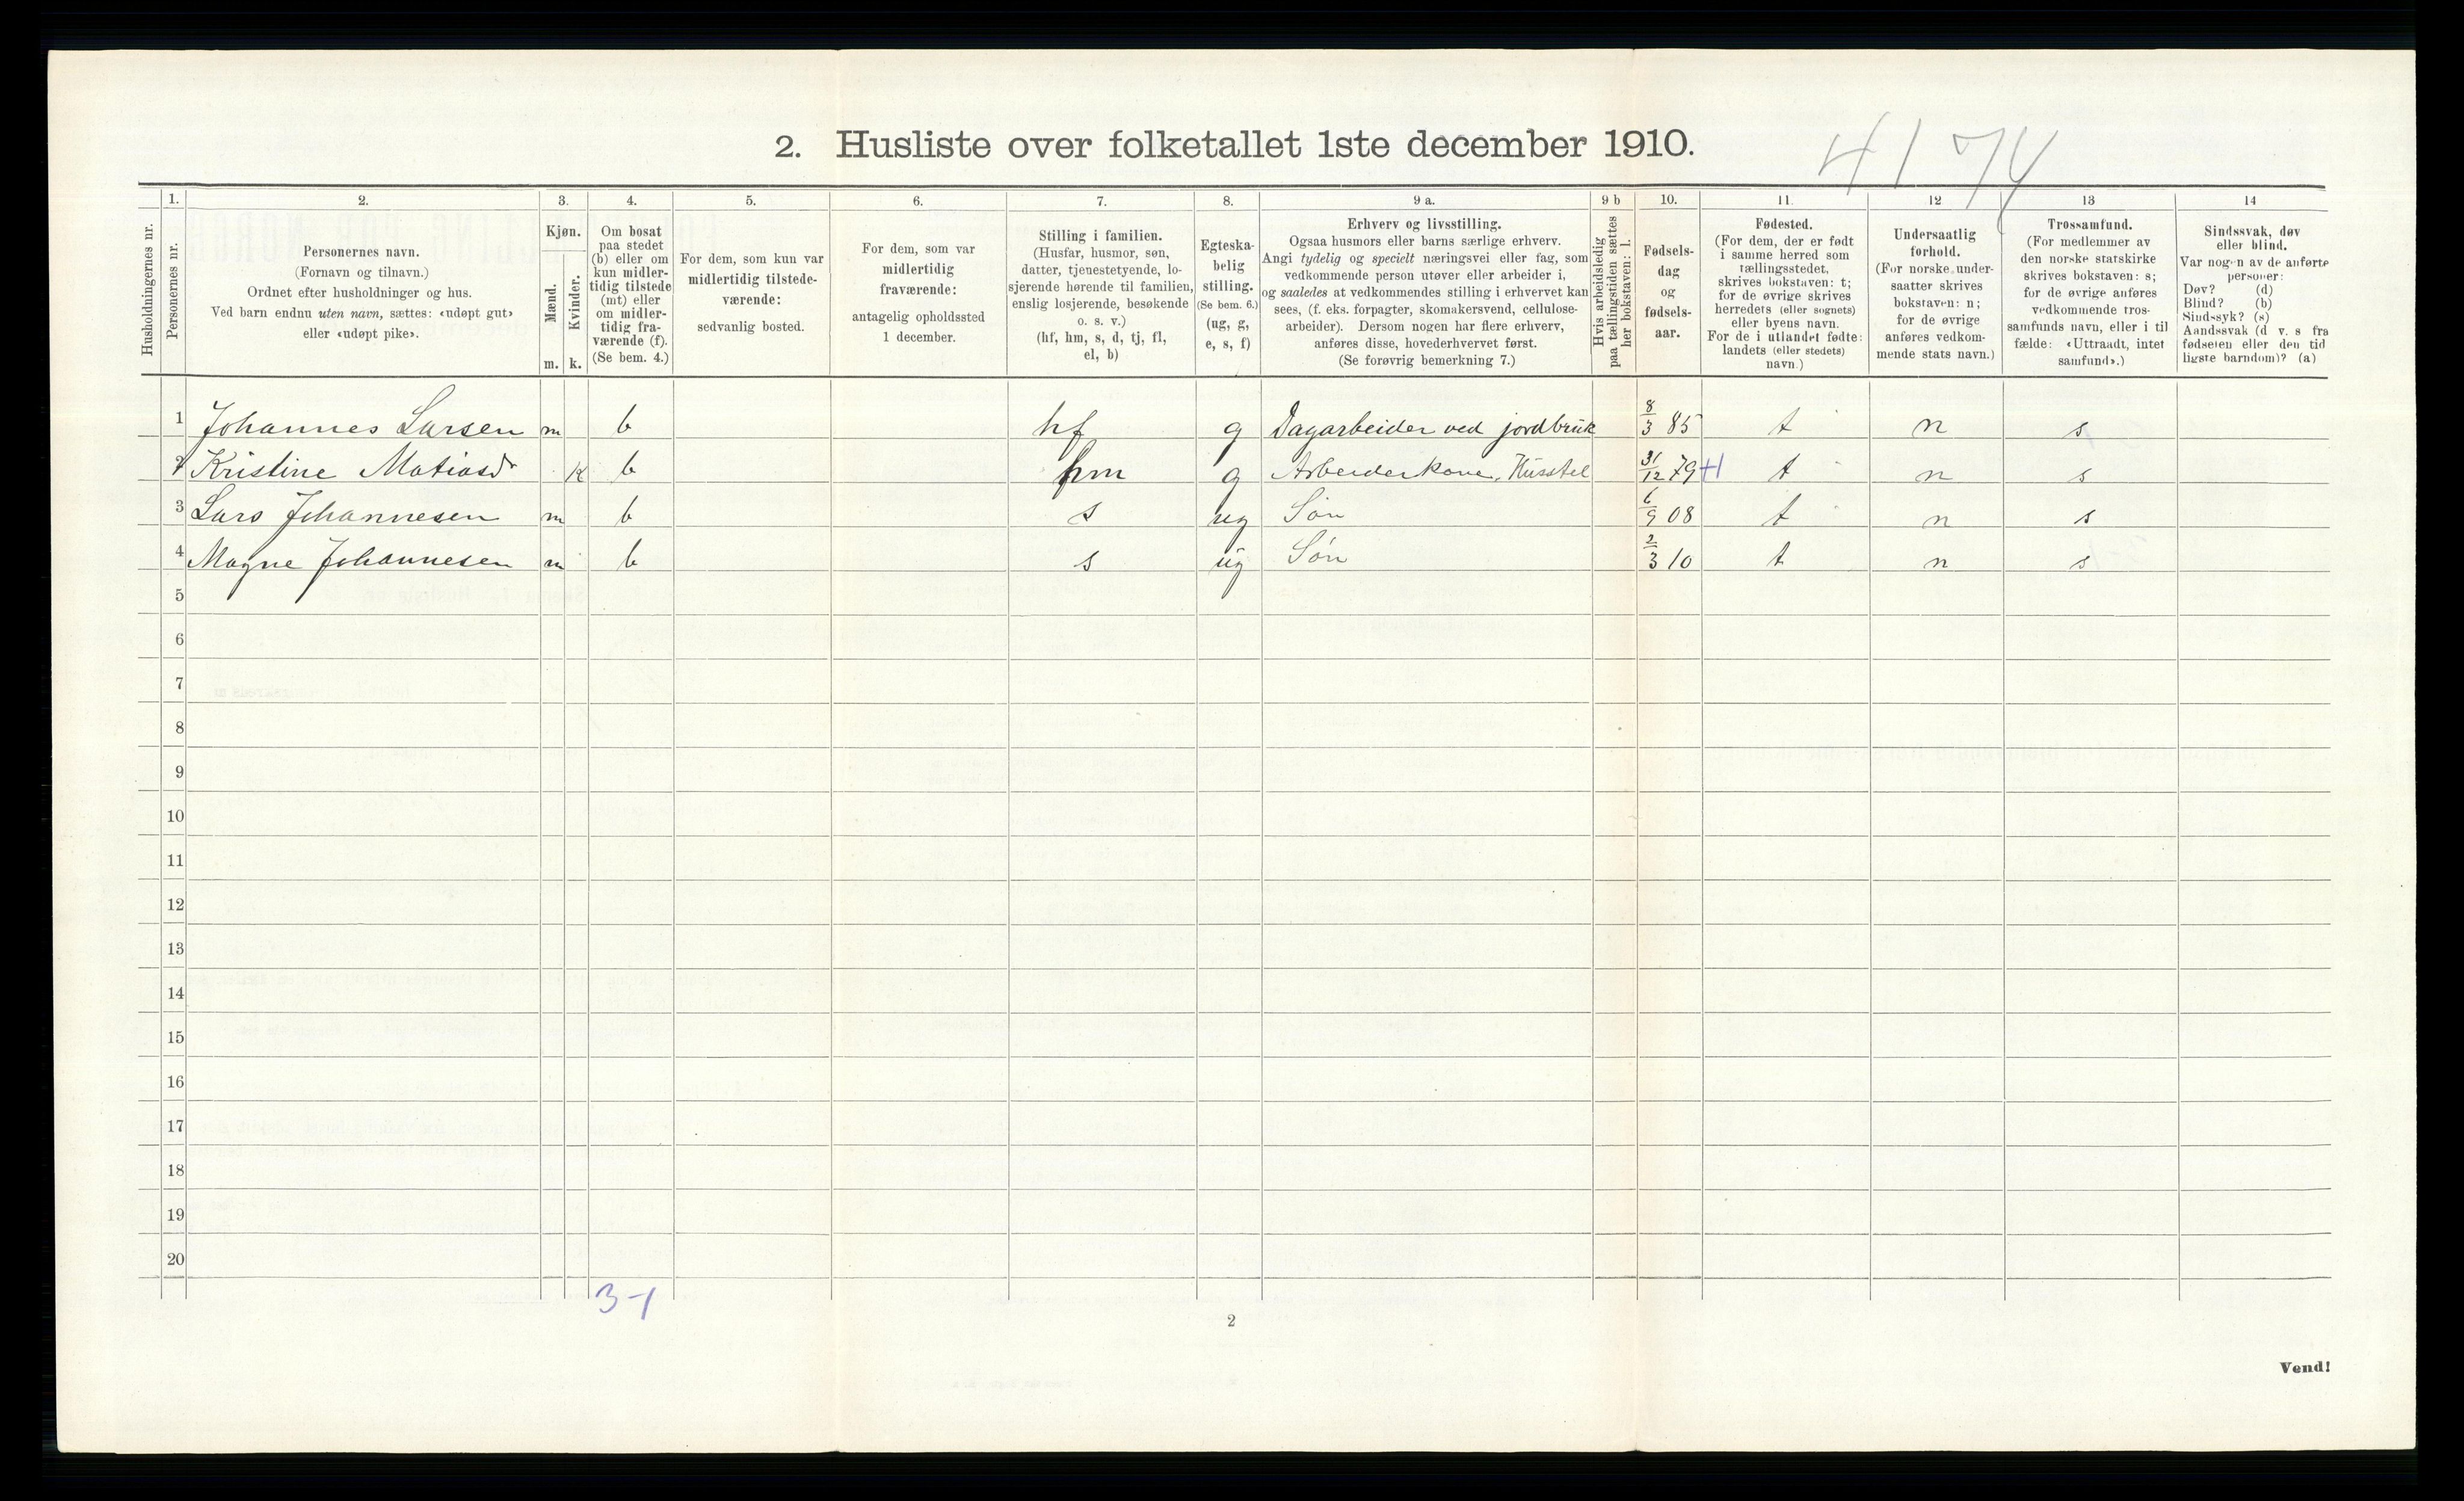 4174
2. Husliste over folketallet 1ste december 1910.
Husholdningernes nr.
1.
Personernes nr.
2.
Personernes navn.
(Fornavn og tilnavn.)
Ordnet efter husholdninger og hus.
Ved barn endnu uten navn, sættes: «udøpt gut»
eller «udøpt pike».
3.
Kjøn.
Mænd.
Kvinder.
m. k.
4.
Om bosat
paa stedet
(b) eller om
kun midler-
tidig tilstede
(mt) eller
om midler-
tidig fra-
værende (f).
(Se bem. 4.)
5.
For dem, som kun var
midlertidig tilstede-
værende:
sedvanlig bosted.
6.
For dem, som var
midlertidig
fraværende:
antagelig opholdssted
1 december.
7.
Stilling i familien.
(Husfar, husmor, søn,
datter, tjenestetyende, lo-
sjerende hørende til familien,
enslig losjerende, besøkende
o. s. v.)
(hf, hm, s, d, tj, fl,
el, b)
8.
Egteska-
belig
stilling.
(Se bem. 6.)
(ug, g,
e, s, f)
9 a.
Erhverv og livsstilling.
Ogsaa husmors eller barns særlige erhverv.
Angi tydelig og specielt næringsvei eller fag, som
vedkommende person utøver eller arbeider i,
og saaledes at vedkommendes stilling i erhvervet kan
sees, (f. eks. forpagter, skomakersvend, cellulose-
arbeider). Dersom nogen har flere erhverv,
anføres disse, hovederhvervet først.
(Se forøvrig bemerkning 7.)
9 b
Hvis arbeidsledig
paa tællingstiden sættes
her bokstaven: l.
10.
Fødsels-
dag
og
fødsels-
aar.
11.
Fødested.
(For dem, der er født
i samme herred som
tællingsstedet,
skrives bokstaven: t;
for de øvrige skrives
herredets (eller sognets)
eller byens navn.
For de i utlandet fødte:
landets (eller stedets)
navn.)
12
Undersaatlig
forhold.
(For norske under-
saatter skrives
bokstaven: n;
for de øvrige
anføres vedkom-
mende stats navn.)
13
Trossamfund.
(For medlemmer av
den norske statskirke
skrives bokstaven: s;
for de øvrige anføres
vedkommende tros-
samfunds navn, eller i til
fælde: «Uttraadt, intet
samfund».)
14
Sindssvak, døv
eller blind.
Var nogen av de anførte
personer:
Døv? (d)
Blind? (b)
Sindssyk? (s)
Aandssvak (d v. s fra
fødselen eller den tid
ligste barndom)? (a)
1 Johannes Larsen m b hf g Dagarbeider ved jordbruk 8/3 85 t n s
2 Kristine Matiasdr k b hm g Arbeiderkone, Husstel 31/12 79 +1 t n s
3 Lars Johannesen m b s ug Søn 6/9 08 t n s
4 Magne Johannesen m b s ug Søn 2/3 10 t n s
5
6
7
8
9
10
11
12
13
14
15
16
17
18
19
20
3-1
2
Vend!